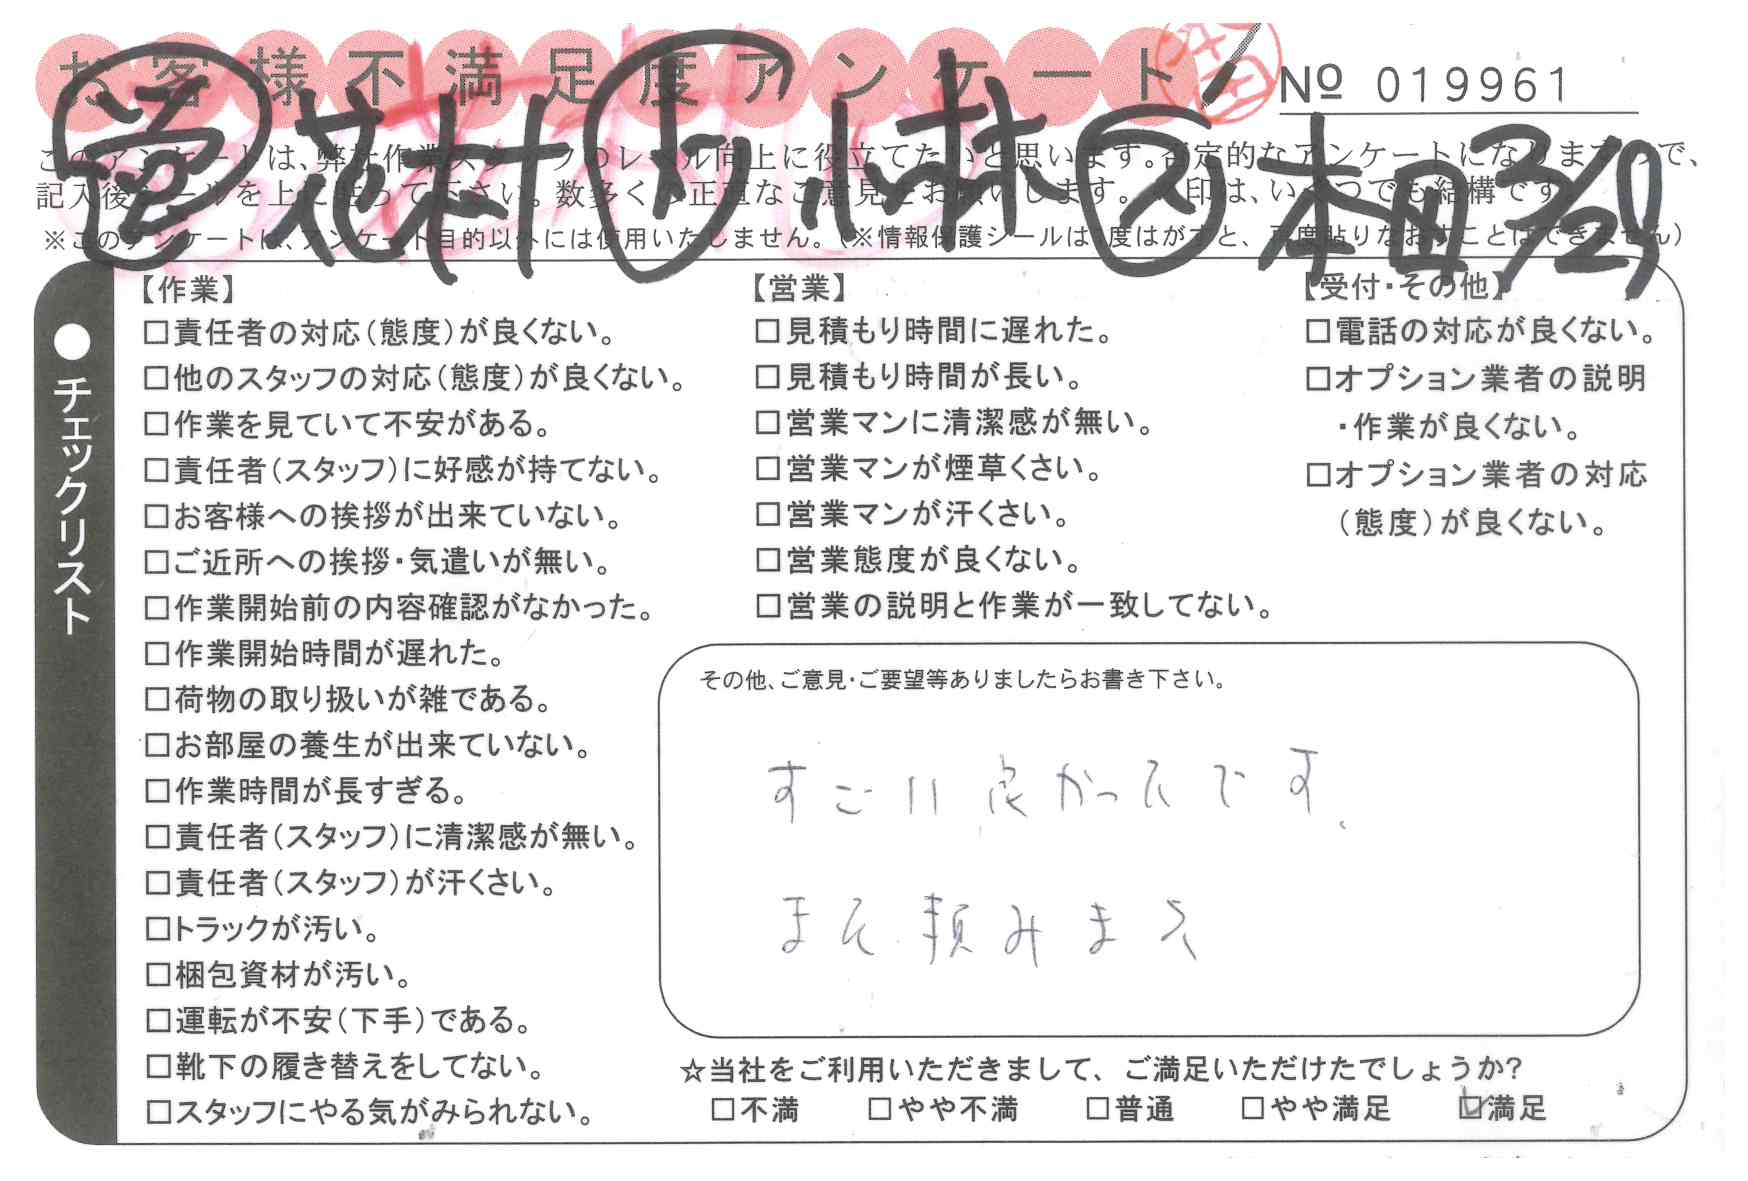 お客様不満足度アンケート
№ 019961
営 花村 ト 小林 ス 本田 3/29
このアンケートは、弊社作業スタッフのレベル向上に役立てたいと思います。否定的なアンケートになりますので、
記入後シールを上に貼って下さい。数多くの正直なご意見をお願いします。 印は、いくつでも結構です
※このアンケートは、アンケート目的以外には使用いたしません。(※情報保護シールは1度はがすと、再度貼りなおすことはできません)
●チェックリスト
【作業】
□責任者の対応(態度)が良くない。
□他のスタッフの対応(態度)が良くない。
□作業を見ていて不安がある。
□責任者(スタッフ)に好感が持てない。
□お客様への挨拶が出来ていない。
□ご近所への挨拶・気遣いが無い。
□作業開始前の内容確認がなかった。
□作業開始時間が遅れた。
□荷物の取り扱いが雑である。
□お部屋の養生が出来ていない。
□作業時間が長すぎる。
□責任者(スタッフ)に清潔感が無い。
□責任者(スタッフ)が汗くさい。
□トラックが汚い。
□梱包資材が汚い。
□運転が不安(下手)である。
□靴下の履き替えをしてない。
□スタッフにやる気がみられない。
【営業】
□見積もり時間に遅れた。
□見積もり時間が長い。
□営業マンに清潔感が無い。
□営業マンが煙草くさい。
□営業マンが汗くさい。
□営業態度が良くない。
□営業の説明と作業が一致してない。
【受付・その他】
□電話の対応が良くない。
□オプション業者の説明
・作業が良くない。
□オプション業者の対応
(態度)が良くない。
その他、ご意見・ご要望等ありましたらお書き下さい。
すごい良かったです。
また頼みます
☆当社をご利用いただきまして、ご満足いただけたでしょうか?
□不満 □やや不満 □普通 □やや満足 ☑満足